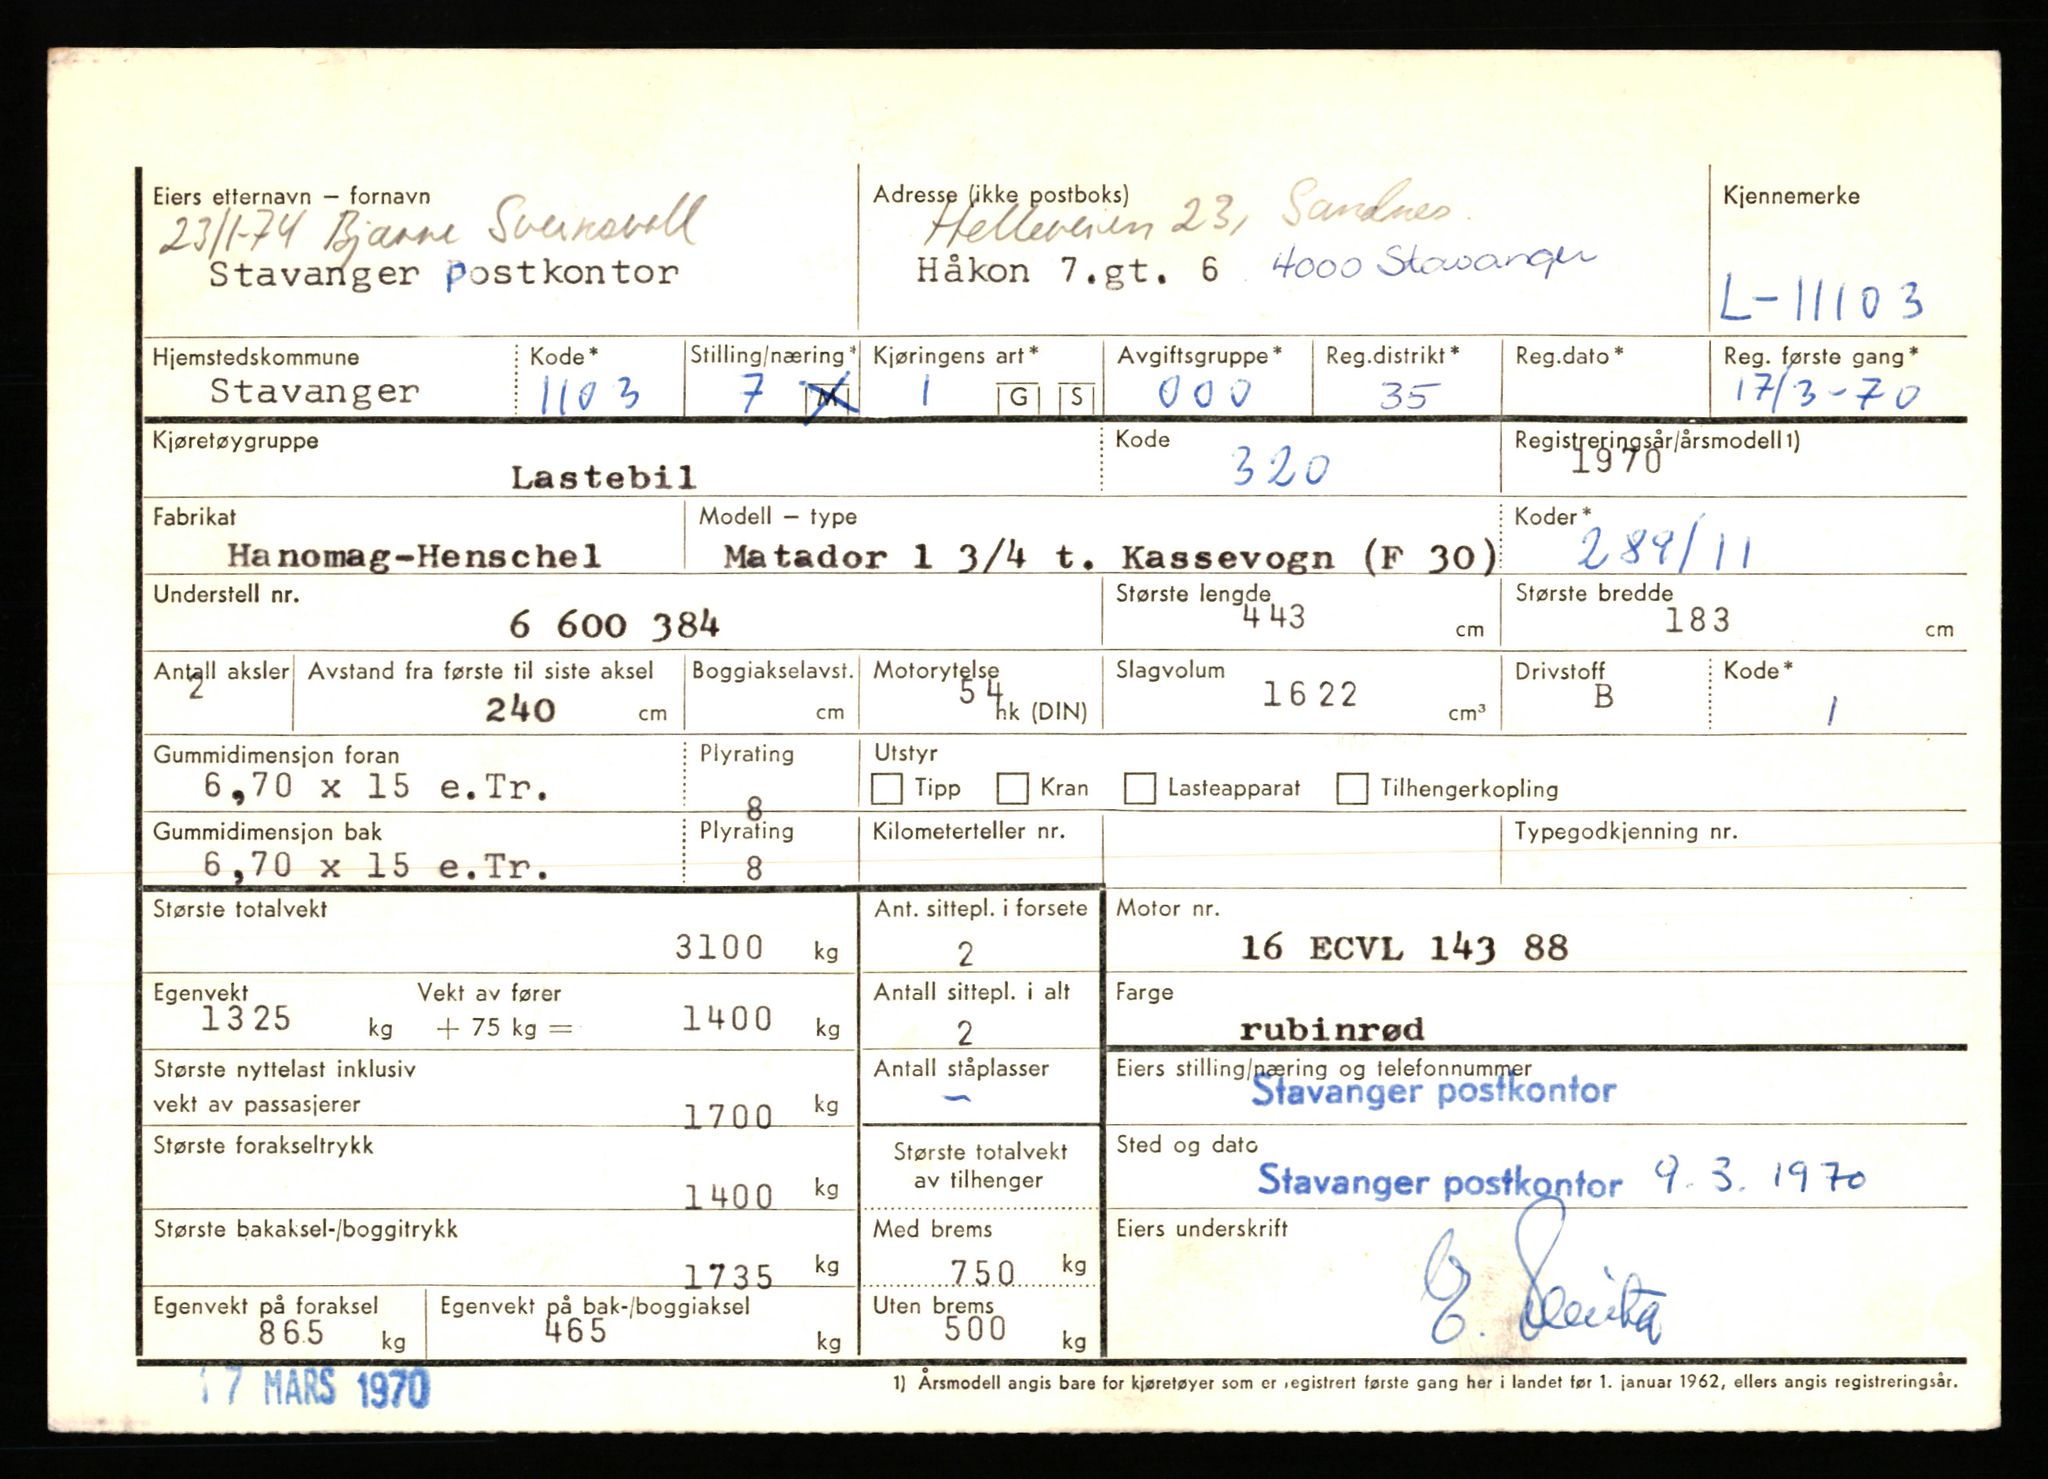 Eiers etternavn – fornavn
23/1-74 Bjarne Sveinsvoll
Stavanger postkontor
Adresse (ikke postboks)
Helleveien 23, Sandnes.
Håkon 7.gt. 6 4000 Stavanger
Kjennemerke
L-11103
Hjemstedskommune
Stavanger
Kode*
1103
Stilling/næring*
7 M
Kjøringens art*
1 G S
Avgiftsgruppe*
000
Reg.distrikt*
35
Reg.dato*
Reg. første gang*
17/3-70
Kjøretøygruppe
Lastebil
Kode
320
Registreringsår/årsmodell1)
1970
Fabrikat
Hanomag-Henschel
Modell – type
Matador 1 3/4 t. Kassevogn (F 30)
Koder*
289/11
Understell nr.
6 600 384
Største lengde
443 cm
Største bredde
183 cm
Antall aksler
2
Avstand fra første til siste aksel
240 cm
Boggiakselavst.
cm
Motorytelse
54 hk (DIN)
Slagvolum
1622 cm³
Drivstoff
B
Kode*
1
Gummidimensjon foran
6,70 x 15 e.Tr.
Plyrating
8
Utstyr
Tipp Kran Lasteapparat Tilhengerkopling
Gummidimensjon bak
6,70 x 15 e.Tr.
Plyrating
8
Kilometerteller nr.
Typegodkjenning nr.
Største totalvekt
3100 kg
Ant. sittepl. i forsete
2
Motor nr.
16 ECVL 143 88
Egenvekt
1325 kg
Vekt av fører
+ 75 kg = 1400 kg
Antall sittepl. i alt
2
Farge
rubinrød
Største nyttelast inklusiv
vekt av passasjerer
1700 kg
Antall ståplasser
–
Eiers stilling/næring og telefonnummer
Stavanger postkontor
Største forakseltrykk
1400 kg
Største totalvekt
av tilhenger
Sted og dato
Stavanger postkontor 9.3.1970
Største bakaksel-/boggitrykk
1735 kg
Med brems
750 kg
Eiers underskrift
Egenvekt på foraksel
865 kg
Egenvekt på bak-/boggiaksel
465 kg
Uten brems
500 kg
17 MARS 1970
1) Årsmodell angis bare for kjøretøyer som er registrert første gang her i landet før 1. januar 1962, ellers angis registreringsår.